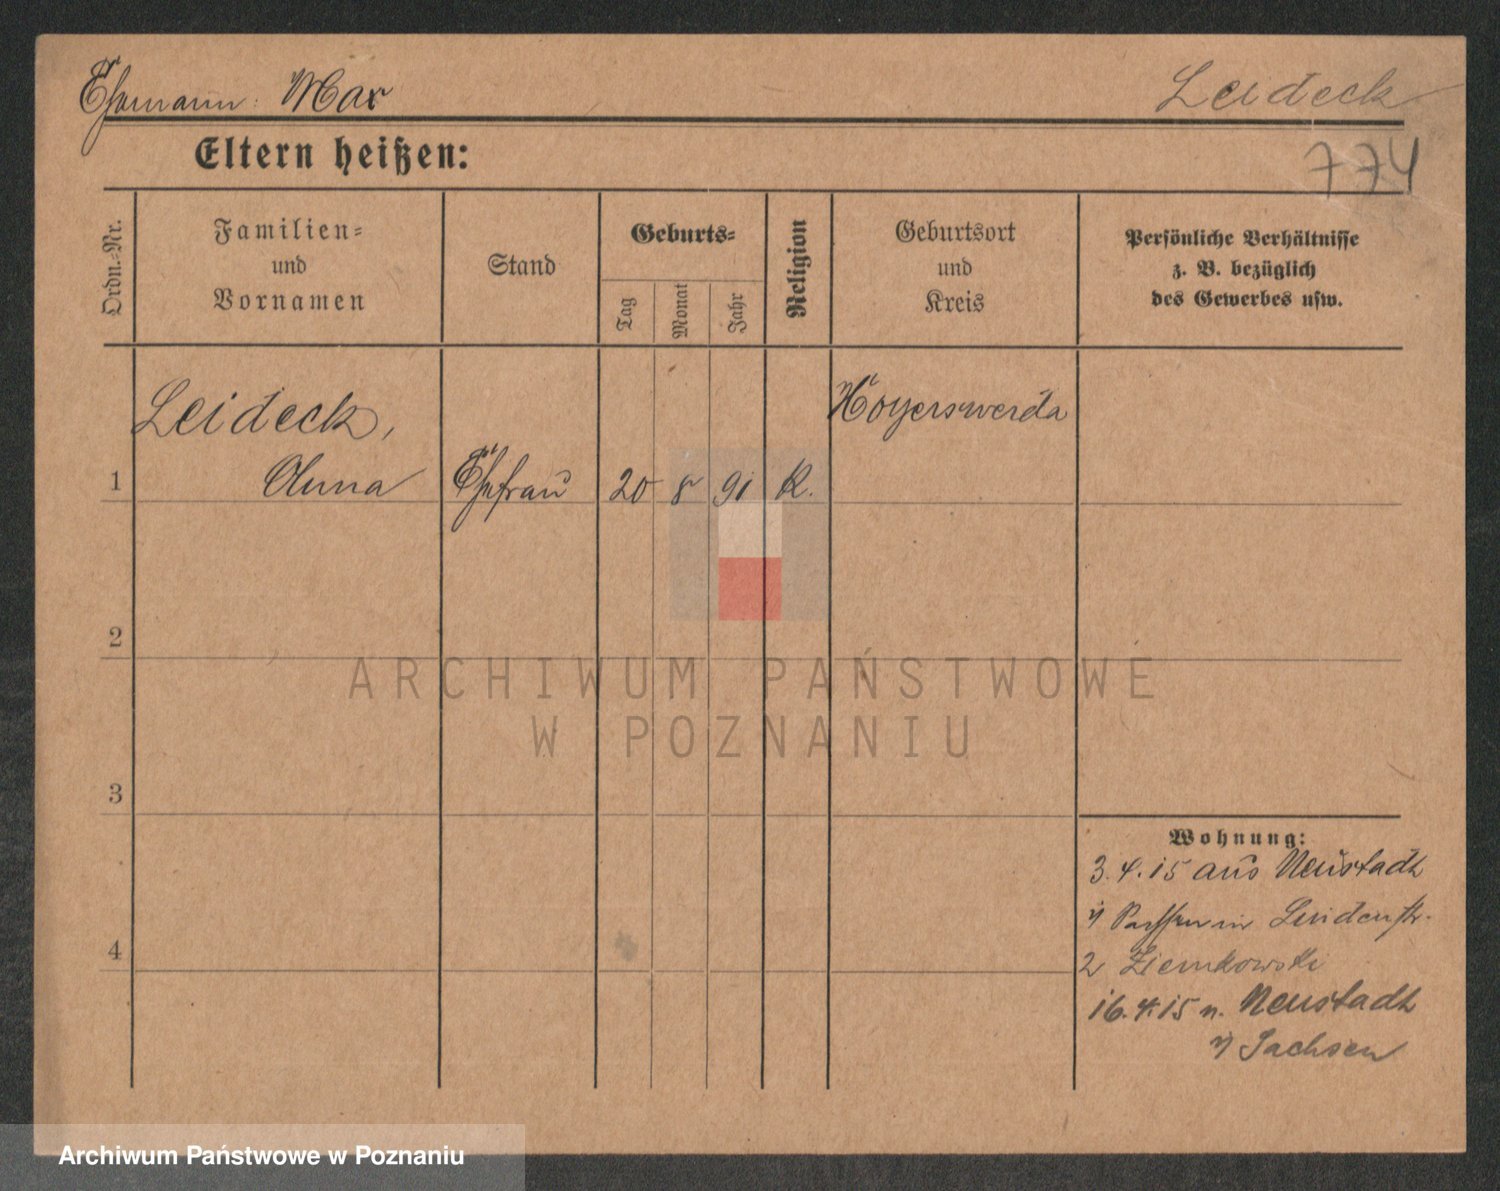 Ehemann: Max
Leideck
Eltern heißen:
774
Ordn.-Nr.
Familien-
und
Vornamen
Stand
Geburts-
Tag
Monat
Jahr
Religion
Geburtsort
und
Kreis
Persönliche Verhältnisse
z. B. bezüglich
des Gewerbes usw.
Leideck,
Hoyerswerda
1
Anna
Ehefrau
20
8
91
K.
2
ARCHIWUM PAŃSTWOWE
W POZNANIU
3
4
Wohnung:
3.4.15 aus Neustadt
Lindenstr.
2 Ziemkowski
16.4.15 n. Neustadt
Sachsen
Archiwum Państwowe w Poznaniu